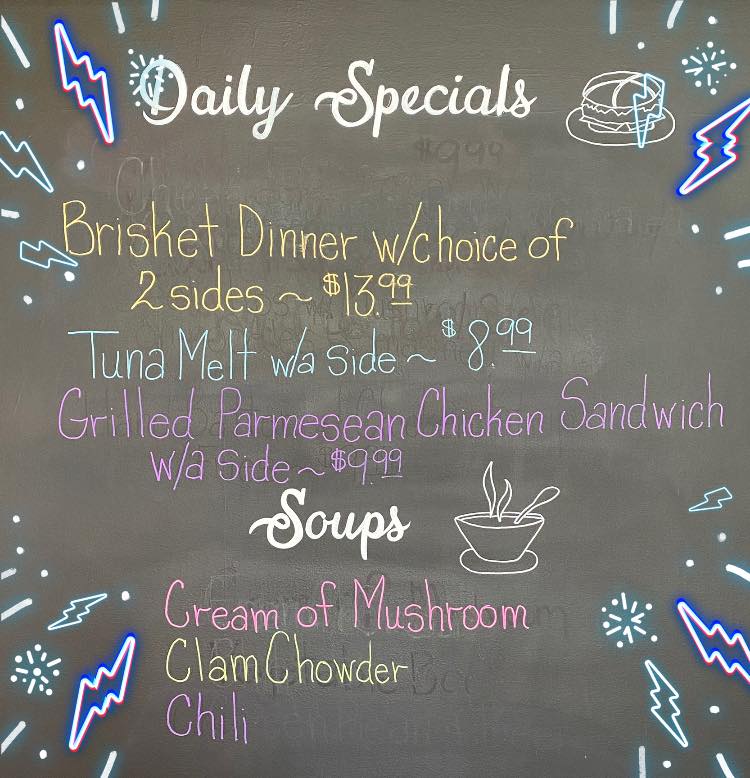 Daily Specials
Brisket Dinner w/choice of
2 sides ~ $13.99
Tuna Melt w/a side ~ $8.99
Grilled Parmesean Chicken Sandwich
w/a side ~ $9.99
Soups
Cream of Mushroom
Clam Chowder
Chili